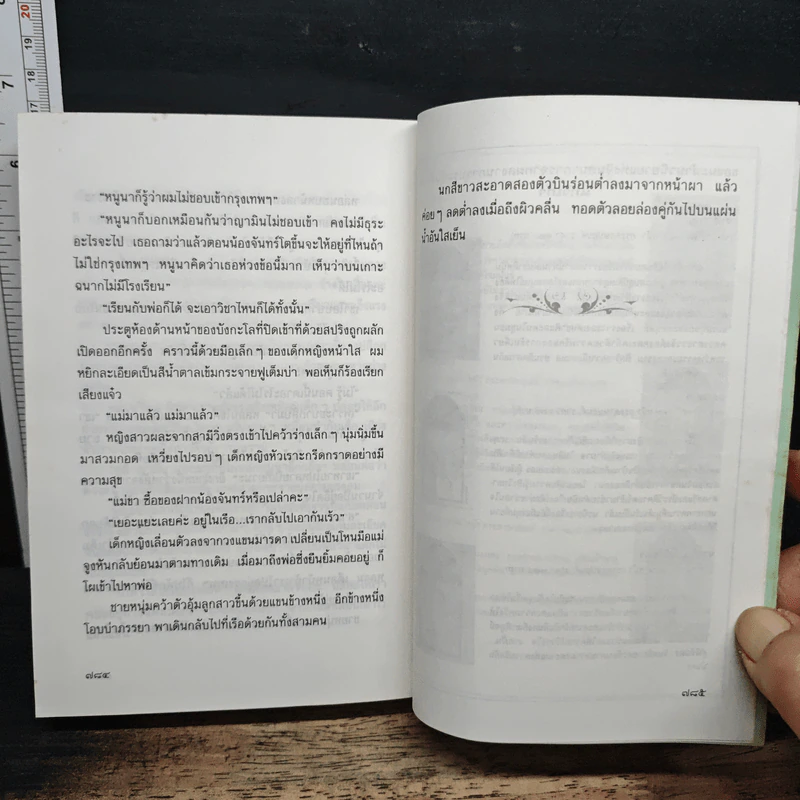 "หนูนาก็รู้ว่าผมไม่ชอบเข้ากรุงเทพฯ"
"หนูนาก็บอกเหมือนกันว่าญามินไม่ชอบเข้า คงไม่มีธุระ
อะไรจะไป เธอถามว่าแล้วตอนน้องจันทร์โตขึ้นจะให้อยู่ที่ไหนถ้า
ไม่ใช่กรุงเทพฯ หนูนาคิดว่าเธอห่วงข้อนี้มาก เห็นว่าบนเกาะ
ฉนากไม่มีโรงเรียน"
"เรียนกับพ่อก็ได้ จะเอาวิชาไหนก็ได้ทั้งนั้น"
ประตูห้องด้านหน้าของบังกะโลที่ปิดเข้าที่ด้วยสปริงถูกผลัก
เปิดออกอีกครั้ง คราวนี้ด้วยมือเล็กๆ ของเด็กหญิงหน้าใส ผม
หยิกละเอียดเป็นสีน้ำตาลเข้มกระจายฟูเต็มบ่า พอเห็นก็ร้องเรียก
เสียงแจ๋ว
"แม่มาแล้ว แม่มาแล้ว"
หญิงสาวผละจากสามีวิ่งตรงเข้าไปคว้าร่างเล็กๆ นุ่มนิ่มขึ้น
มาสวมกอด เหวี่ยงไปรอบๆ เด็กหญิงหัวเราะกรีดกราดอย่างมี
ความสุข
"แม่ขา ซื้อของฝากน้องจันทร์หรือเปล่าคะ"
"เยอะแยะเลยค่ะ อยู่ในเรือ...เรากลับไปเอากันเร็ว"
เด็กหญิงเลื่อนตัวลงจากวงแขนมารดา เปลี่ยนเป็นโหนมือแม่
จูงหันกลับย้อนมาตามทางเดิม เมื่อมาถึงพ่อซึ่งยืนยิ้มคอยอยู่ ก็
โผเข้าไปหาพ่อ
ชายหนุ่มคว้าตัวอุ้มลูกสาวขึ้นด้วยแขนข้างหนึ่ง อีกข้างหนึ่ง
โอบบ่าภรรยา พาเดินกลับไปที่เรือด้วยกันทั้งสามคน
๗๘๔
นกสีขาวสะอาดสองตัวบินร่อนต่ำลงมาจากหน้าผา แล้ว
ค่อยๆ ลดต่ำลงเมื่อถึงผิวคลื่น ทอดตัวลอยล่องคู่กันไปบนแผ่น
น้ำอันใสเย็น
๗๘๕
7
20
19
18
17